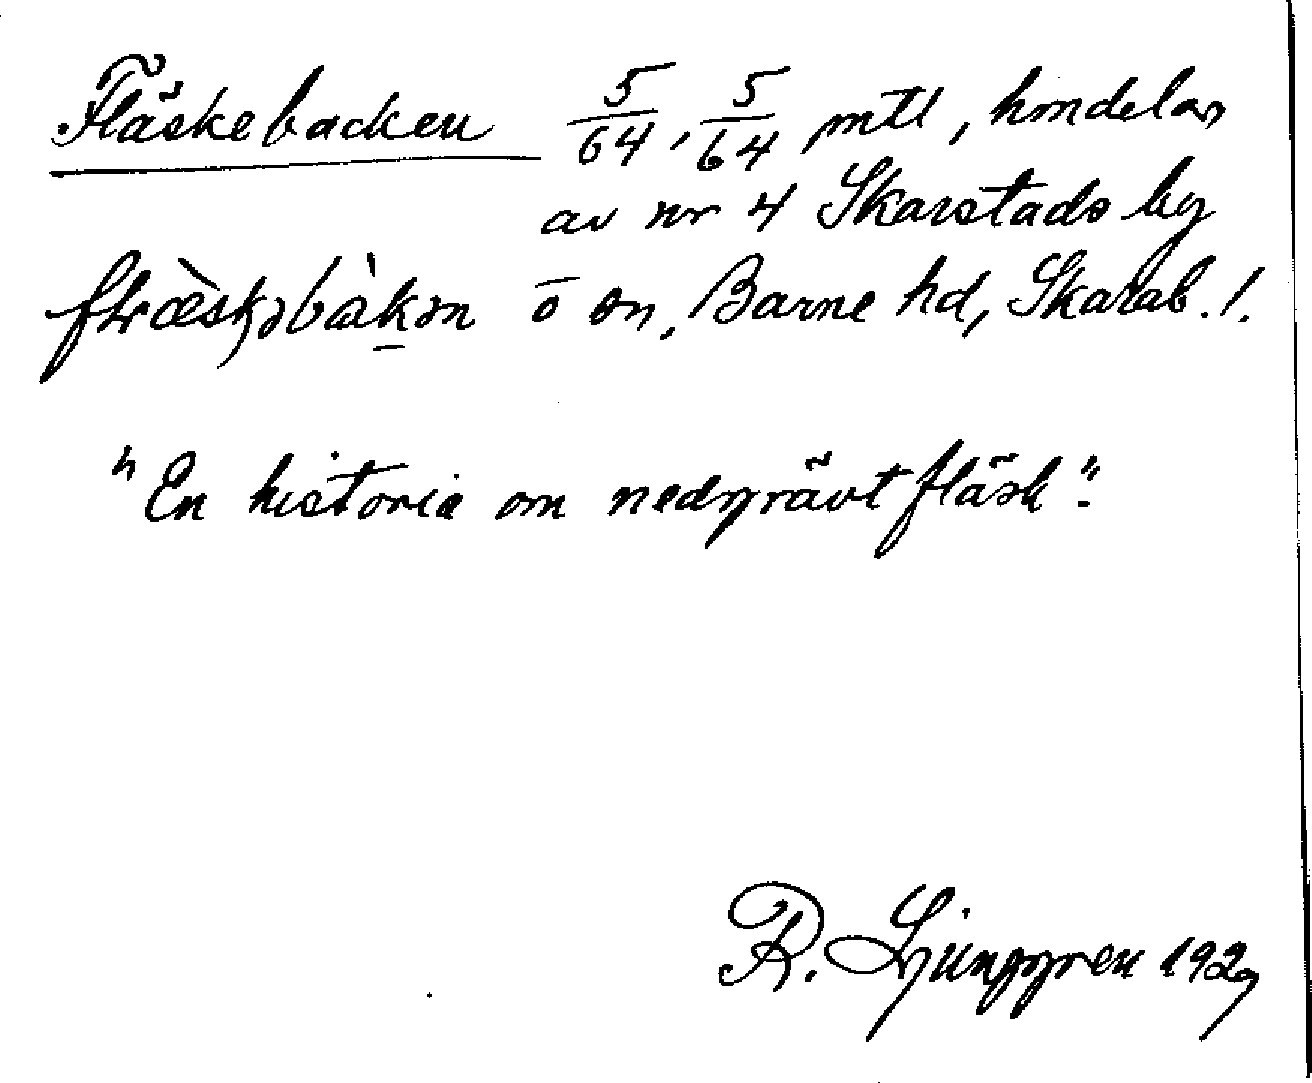 Fläskebacken 5/64, 5/64 mtl, hmdelar
av nr 4 Skarstads by
ō sn, Barne hd, Skarab. l.
"En historia om nedgrävt fläsk".
R. Ljunggren 1929